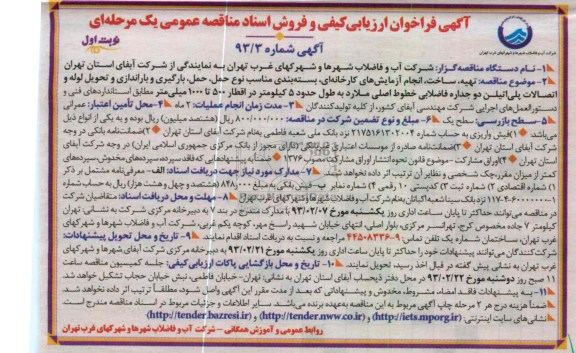 آگهی فراخوان ارزیابی کیفی و فروش اسناد مناقصه عمومی یک مرحله‌ای
آگهی شماره ۹۳/۳
نوبت اول
شرکت آب و فاضلاب شهرها و شهرکهای غرب تهران
۱- نام دستگاه مناقصه‌گزار: شرکت آب و فاضلاب شهرها و شهرکهای غرب تهران به نمایندگی از شرکت آبفای استان تهران
۲- موضوع مناقصه: تهیه، ساخت، انجام آزمایش‌های کارخانه‌ای، بسته‌بندی مناسب نوع حمل، حمل، بارگیری و باراندازی و تحویل لوله و
اتصالات پلی‌اتیلن دو جداره فاضلابی خطوط اصلی ملارد به طول حدود ۵ کیلومتر در اقطار ۵۰۰ تا ۱۰۰۰ میلی‌متر مطابق استانداردهای فنی و
دستورالعمل‌های اجرایی شرکت مهندسی آبفای کشور از کلیه تولیدکنندگان ۳- مدت زمان انجام عملیات: ۲ ماه ۴- محل تأمین اعتبار: عمرانی
۵- سطح بازرسی: سطح یک ۶- مبلغ و نوع تضمین شرکت در مناقصه: ۸۰۰/۰۰۰/۰۰۰ ریال (هشتصد میلیون) ریال بوده و به یکی از انواع ذیل
می‌باشد ۱) فیش واریزی به حساب شماره ۲۱۷۵۱۶۱۳۰۲۰۰۴ نزد بانک ملی شعبه فاطمی به‌نام شرکت آبفای استان تهران ۲) ضمانتنامه بانکی در وجه
شرکت آبفای استان تهران ۳) ضمانتنامه صادره از موسسات اعتباری غیربانکی (دارای مجوز از بانک مرکزی جمهوری اسلامی ایران) در وجه شرکت آبفای
استان تهران ۴) اوراق مشارکت - موضوع قانون نحوه انتشار اوراق مشارکت مصوب ۱۳۷۶ ضمناً به پیشنهادهایی که فاقد سپرده، سپرده‌های مخدوش، سپرده‌های
کمتر از میزان مقرر، چک شخصی و نظایر آن ترتیب اثر داده نخواهد شد. ۷- مدارک مورد نیاز جهت دریافت اسناد: الف- معرفی‌نامه مشتمل بر ذکر
۱) شماره اقتصادی ۲) شماره ثبت ۳) کدپستی ۱۰ رقمی ۴) شماره نمابر ب- فیش بانکی به‌مبلغ ۸۴۸,۰۰۰ (هشتصد و چهل و هشت هزار) ریال به حساب شماره
نزد بانک سینا شعبه آبادانان به‌نام شرکت آب و فاضلاب شهرها و شهرکهای غرب تهران ۸- مهلت و محل دریافت اسناد: متقاضیان شرکت
در مناقصه می‌توانند حداکثر تا پایان ساعت اداری روز یکشنبه مورخ ۹۳/۰۲/۰۷ با مدارک مندرج در بند ۷ به دبیرخانه مرکزی شرکت به نشانی تهران
کیلومتر ۷ جاده مخصوص کرج، تهرانسر مرکزی، بلوار اصلی، انتهای خیابان شهید راسخ مهر، کوچه یکم غربی، شرکت آب و فاضلاب شهرها و شهرکهای
غرب تهران، ساختمان شماره یک تلفن تماس ۹-۴۴۵۰۸۳۳۶ مراجعه و نسبت به دریافت اسناد اقدام نمایند. ۹- تاریخ و محل تحویل پیشنهادات:
شرکت‌کنندگان می‌توانند پیشنهادات خود را حداکثر تا پایان ساعت اداری روز یکشنبه مورخ ۹۳/۰۲/۲۱ به دبیرخانه مرکزی شرکت آبفای شهرها و شهرکهای
غرب تهران به نشانی پیش گفته در قبال اخذ رسید، تحویل نمایند ۱۰- تاریخ و محل بازگشایی پاکات ارزیابی کیفی: جلسه کمیسیون مناقصه ساعت
۱۱ صبح روز دوشنبه مورخ ۹۳/۰۲/۲۲ در محل دفتر ذیحساب آبفای استان تهران به نشانی، تهران- خیابان فاطمی، نبش خیابان حجاب تشکیل خواهد شد
۱۱- به پیشنهادات فاقد امضاء، مشروط، مخدوش و پیشنهاداتی که بعد از مدت مقرر این آگهی واصل شود، مطلقاً ترتیب اثر داده نخواهد شد.
ضمناً هزینه درج هر ۲ مرحله چاپ آگهی مربوط به این مناقصه به‌عهده برنده می‌باشد. سایر اطلاعات و جزئیات مربوط در اسناد مناقصه مندرج است.
نشانی‌های سایت اینترنتی: (http://iets.mporg.ir) و (http://tender.nww.co.ir) و (http://tender.bazresi.ir)
روابط عمومی و آموزش همگانی - شرکت آب و فاضلاب شهرها و شهرکهای غرب تهران